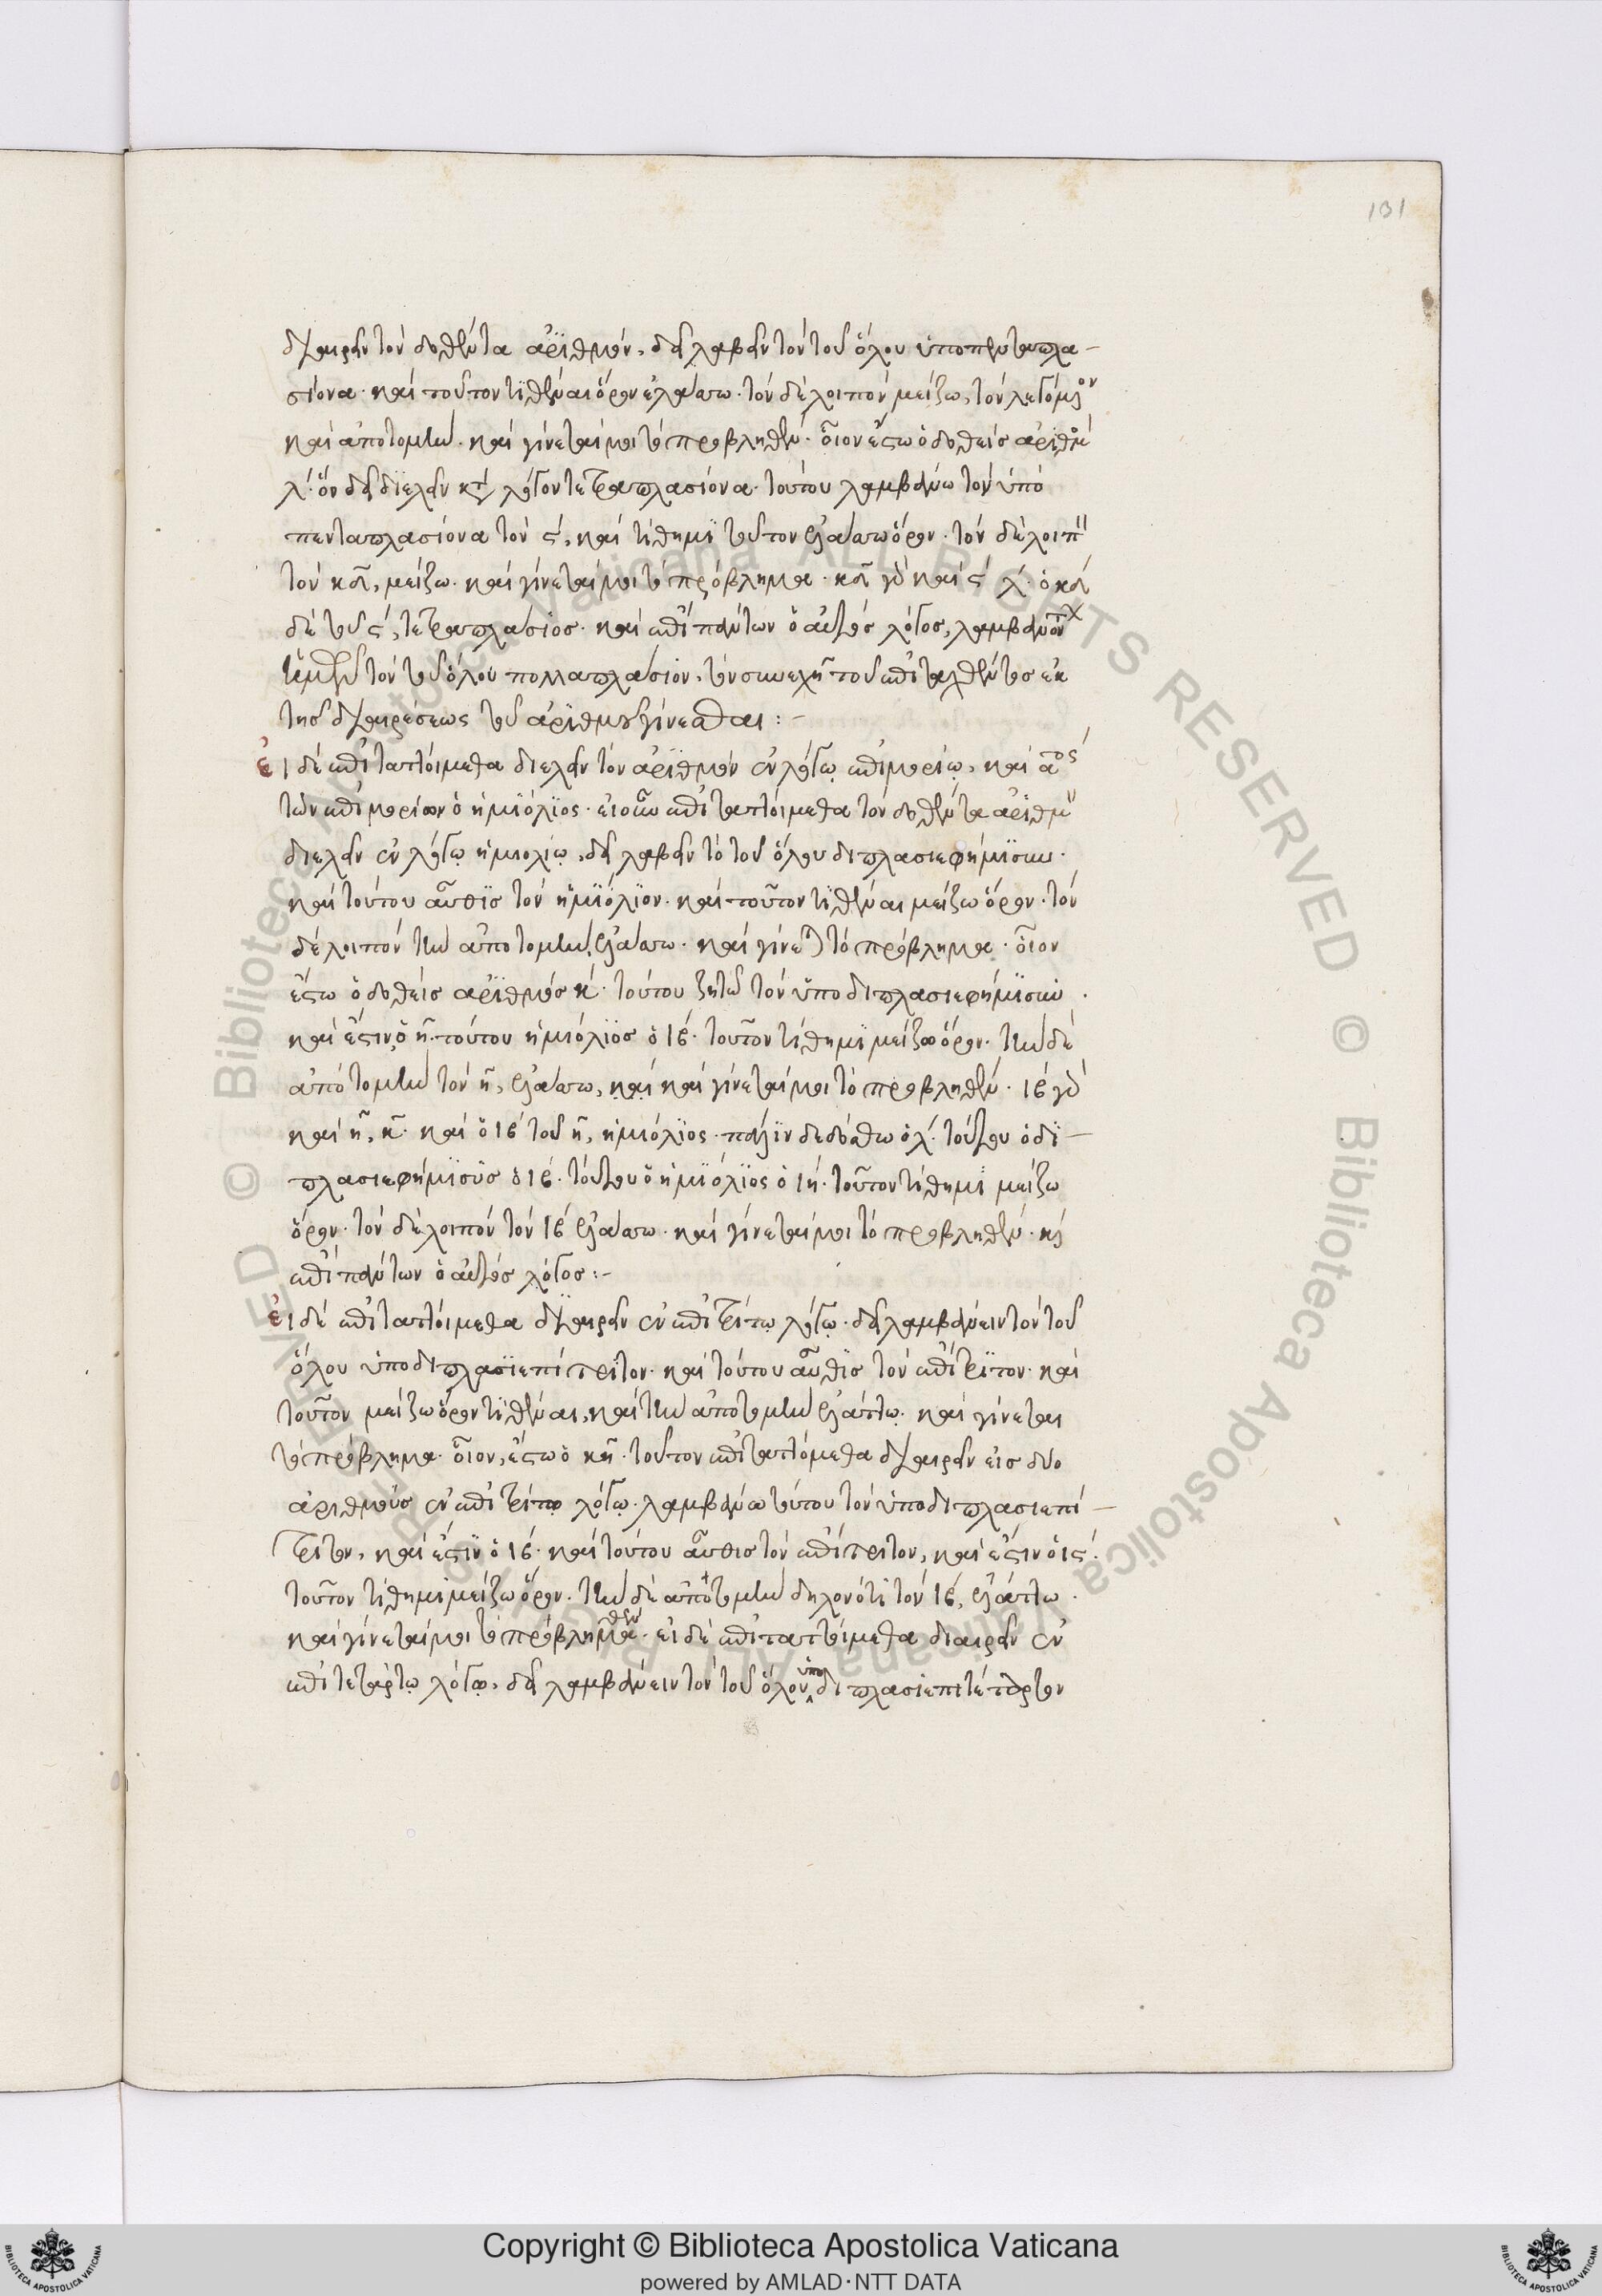 131
διαιρεῖν τὸν δοθέντα ἀριθμὸν, δεῖ λαβεῖν τὸν τοῦ ὅλου ὑποπενταπλα-
σίονα· καὶ τοῦτον τιθέναι ὅρον ἐλάττω· τὸν δὲ λοιπὸν μείζω, τὸν λεγόμενον
καὶ ἀποτομὴν. καὶ γίνεταί μοι τὸ προβληθέν. οἷον ἔστω ὁ δοθεὶς ἀριθμὸ
λ· ὃν δεῖ διελεῖν κατὰ λόγον τετραπλασίονα· τούτου λαμβάνω τὸν ὑπο
πενταπλασίονα τὸν ς, καὶ τίθημι τοῦτον ἐλάττω ὅρον. τὸν δὲ λοιπὸν
τὸν κδ, μείζω. καὶ γίνεταί μοι τὸ πρόβλημα. κδ γὰρ καὶ ς λ. ὁ κδ
δὲ τοῦ ς, τετραπλάσιος. καὶ ἐπὶ πάντων ὁ αὐτὸς λόγος,
τὸν τοῦ ὅλου πολλαπλάσιον, τὸν συνεχῆ τοῦ ἐπιταχθέντος ἐκ
τῆς διαιρέσεως τοῦ ἀριθμοῦ γίνεσθαι:-
εἰ δὲ ἐπιταττόιμεθα διελεῖν τὸν ἀριθμὸν ἐν λόγῳ ἐπιμορίῳ, καὶ αος
τῶν ἐπιμορίων ὁ ἡμιόλιος. εἰ οὖν ἐπιταττόιμεθα τὸν δοθέντα ἀριθμὸν
διελεῖν ἐν λόγῳ ἡμιολίῳ, δεῖ λαβεῖν τὸ τοῦ ὅλου διπλασιεφήμισυν.
καὶ τούτου αὖθις τὸν ἡμιόλιον. καὶ τοῦτον τιθέναι μείζω ὅρον. τὸν
δὲ λοιπὸν τὴν ἀποτομὴν, ἐλάττω. καὶ γίνεται τὸ πρόβλημα. οἷον
ἔστω ὁ δοθεὶς ἀριθμὸς κ. τούτου ζητῶ τὸν ὑποδιπλασιεφήμισυν.
καὶ ἔστιν ὁ η. τούτου ἡμιόλιος ὁ ιβ. τοῦτον τίθημι μείζω ὅρον. τὴν δὲ
ἀποτομὴν τὸν η, ἐλάττω, καὶ καὶ γίνεταί μοι τὸ προβληθέν. ιβ γὰρ
καὶ η, κ. καὶ ὁ ιβ τοῦ η, ἡμιόλιος. πάλιν δεδόσθω ὁ λ. τούτου ὁ δι-
πλασιεφήμισυς ὁ ιβ. τούτου ὁ ἡμιόλιος ὁ ιη. τοῦτον τίθημι μείζω
ὅρον. τὸν δὲ λοιπὸν τὸν ιβ ἐλάττω. καὶ γίνεταί μοι τὸ προβληθέν. καὶ
ἐπὶ πάντων ὁ αὐτὸς λόγος:-
εἰ δὲ ἐπιταττόιμεθα διαιρεῖν ἐν ἐπιτρίτῳ λόγῳ. δεῖ λαμβάνειν τὸν τοῦ
ὅλου ὑποδιπλασιεπίτριτον. καὶ τούτου αὖθις τὸν ἐπίτριτον. καὶ
τοῦτον μείζω ὅρον τιθέναι, καὶ τὴν ἀποτομὴν ἐλάττω. καὶ γίνεται
τὸ πρόβλημα. οἷον, ἔστω ὁ κη. τοῦτον ἐπιταττόμεθα διαιρεῖν εἰς δύο
ἀριθμοὺς ἐν ἐπιτρίτῳ λόγῳ. λαμβάνω τούτου τὸν ὑποδιπλασιεπί-
τριτον, καὶ ἔστιν ὁ ιβ. καὶ τούτου αὖθις τὸν ἐπίτριτον, καὶ ἔστιν ὁ ις.
τοῦτον τίθημι μείζω ὅρον. τὴν δὲ ἀποτομὴν δηλονότι τὸν ιβ, ἐλάττω.
καὶ γίνεταί μοι τὸ προβληθέν. εἰ δὲ ἐπιταττόιμεθα διαιρεῖν ἐν
ἐπιτετάρτῳ λόγῳ, δεῖ λαμβάνειν τὸν τοῦ ὅλου ὑποδιπλασιεπιτέταρτον
Copyright © Biblioteca Apostolica Vaticana
powered by AMLAD·NTT DATA